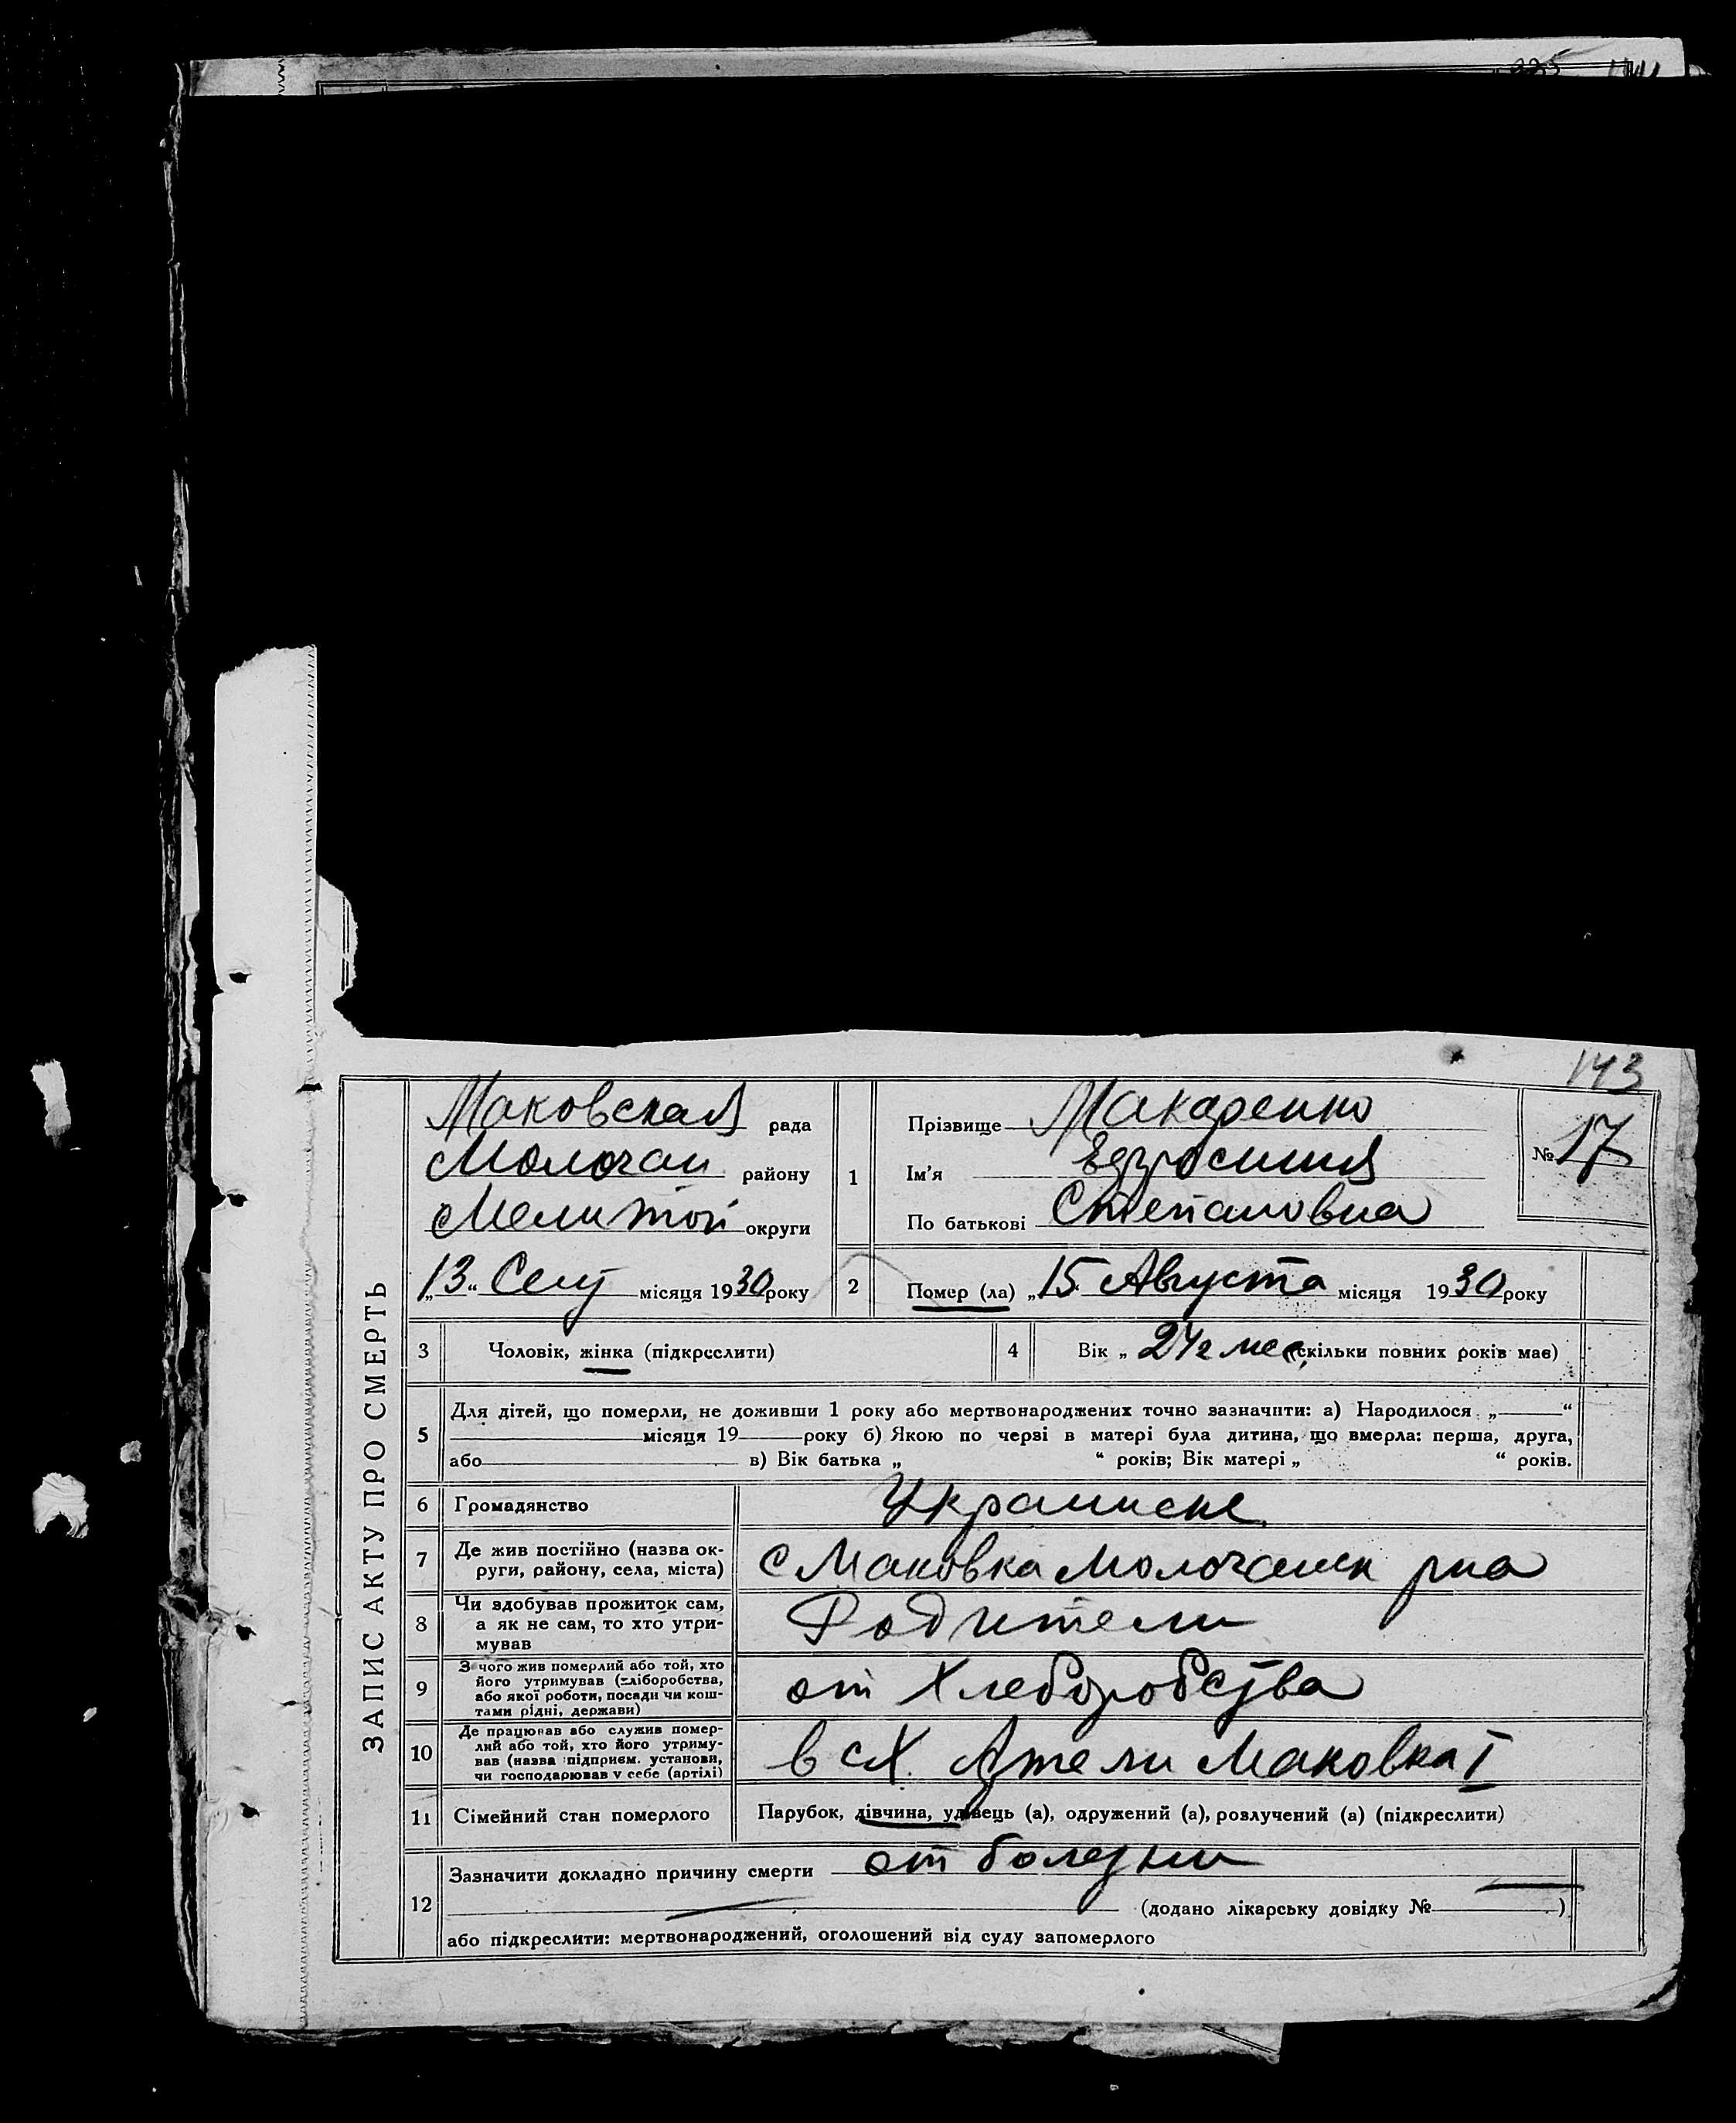 143
ЗАПИС АКТУ ПРО СМЕРТЬ
Маковская рада
Молочан району
Мелитой округи
„13“ Сент місяця 1930 року
1
Прізвище Макаренко
Ім'я
По батькові Степановна
№ 17
2
Помер (ла) „15 Августа місяця 1930 року
3 Чоловік, жінка (підкреслити)
4 Вік „ 2 1/2 мес (скільки повних років має)
5
Для дітей, що померли, не доживши 1 року або мертвонароджених точно зазначити: а) Народилося „ “
місяця 19 року б) Якою по черзі в матері була дитина, що вмерла: перша, друга,
або в) Вік батька „ “ років; Вік матері „ “ років.
6 Громадянство Украинске
7 Де жив постійно (назва ок-
руги, району, села, міста)
с Маковка Молочанск рна
8 Чи здобував прожиток сам,
а як не сам, то хто утри-
мував
Родители
9 З чого жив померлий або той, хто
його утримував (хліборобства,
або якої роботи, посади чи кош-
тами рідні, держави)
от Хлеборобства
10 Де працював або служив помер-
лий або той, хто його утриму-
вав (назва підприєм. установи,
чи господарював у себе (артілі)
в сх. Артели Маковка I
11 Сімейний стан померлого Парубок, дівчина, удівець (а), одружений (а), розлучений (а) (підкреслити)
12
Зазначити докладно причину смерти от болезни
(додано лікарську довідку № )
або підкреслити: мертвонароджений, оголошений від суду запомерлого